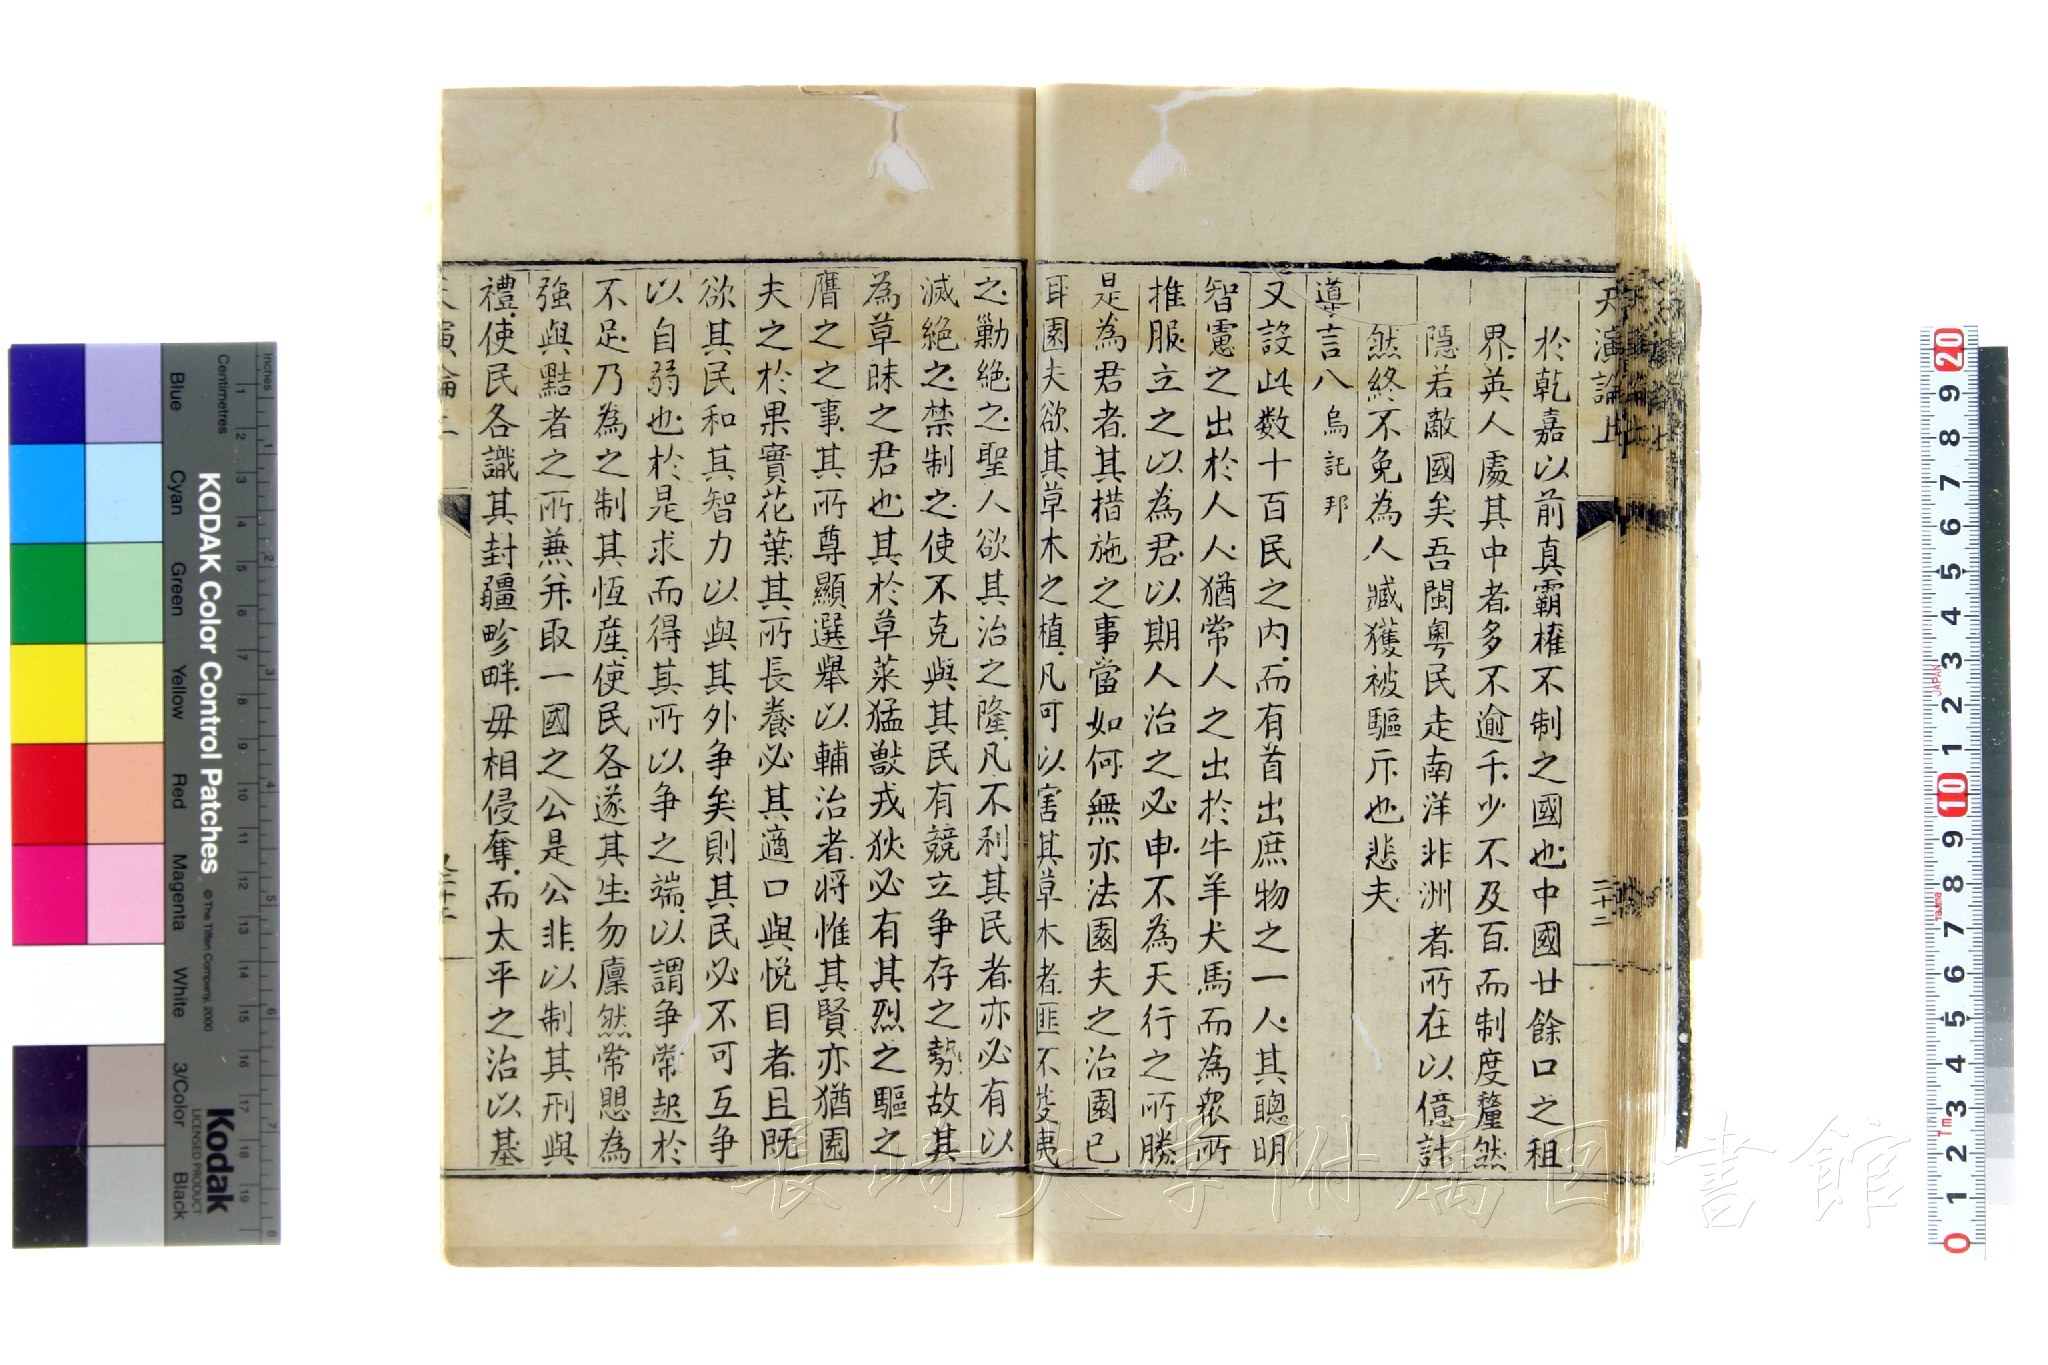 天演論上
二十二
於乾嘉以前真霸權不制之國也中國廿餘口之租
界英人處其中者多不逾千少不及百而制度釐然
隱若敵國矣吾閩粵民走南洋非洲者所在以億計
然終不免為人臧獲被驅斥也悲夫
導言八 烏託邦
又設此數十百民之內而有首出庶物之一人其聰明
智慮之出於人人猶常人之出於牛羊犬馬而為眾所
推服立之以為君以期人治之必申不為天行之所勝
是為君者其措施之事當如何無亦法園夫之治園已
耳園夫欲其草木之植凡可以害其草木者匪不芟夷
之勦絕之聖人欲其治之隆凡不利其民者亦必有以
滅絕之禁制之使不克與其民有競立争存之勢故其
為草昧之君也其於草萊猛獸戎狄必有其烈之驅之
膺之之事其所尊顯選舉以輔治者將惟其賢亦猶園
夫之於果實花葉其所長養必其適口與悅目者且既
欲其民和其智力以與其外争矣則其民必不可互争
以自弱也於是求而得其所以争之端以謂争常起於
不足乃為之制其恆產使民各遂其生勿廩然常愳為
強與黠者之所兼并取一國之公是公非以制其刑與
禮使民各識其封疆畛畔毋相侵奪而太平之治以基
長崎大学附属図書館
KODAK Color Control Patches
© The Tiffen Company, 2000
Kodak
LICENSED PRODUCT
Inches
1 2 3 4 5 6 7 8
Centimetres
1 2 3 4 5 6 7 8 9 10 11 12 13 14 15 16 17 18 19
Blue
Cyan
Green
Yellow
Red
Magenta
White
3/Color
Black
20 9 8 7 6 5 4 3 2 1 10 9 8 7 6 5 4 3 2 1 0
JAPAN
Tajima